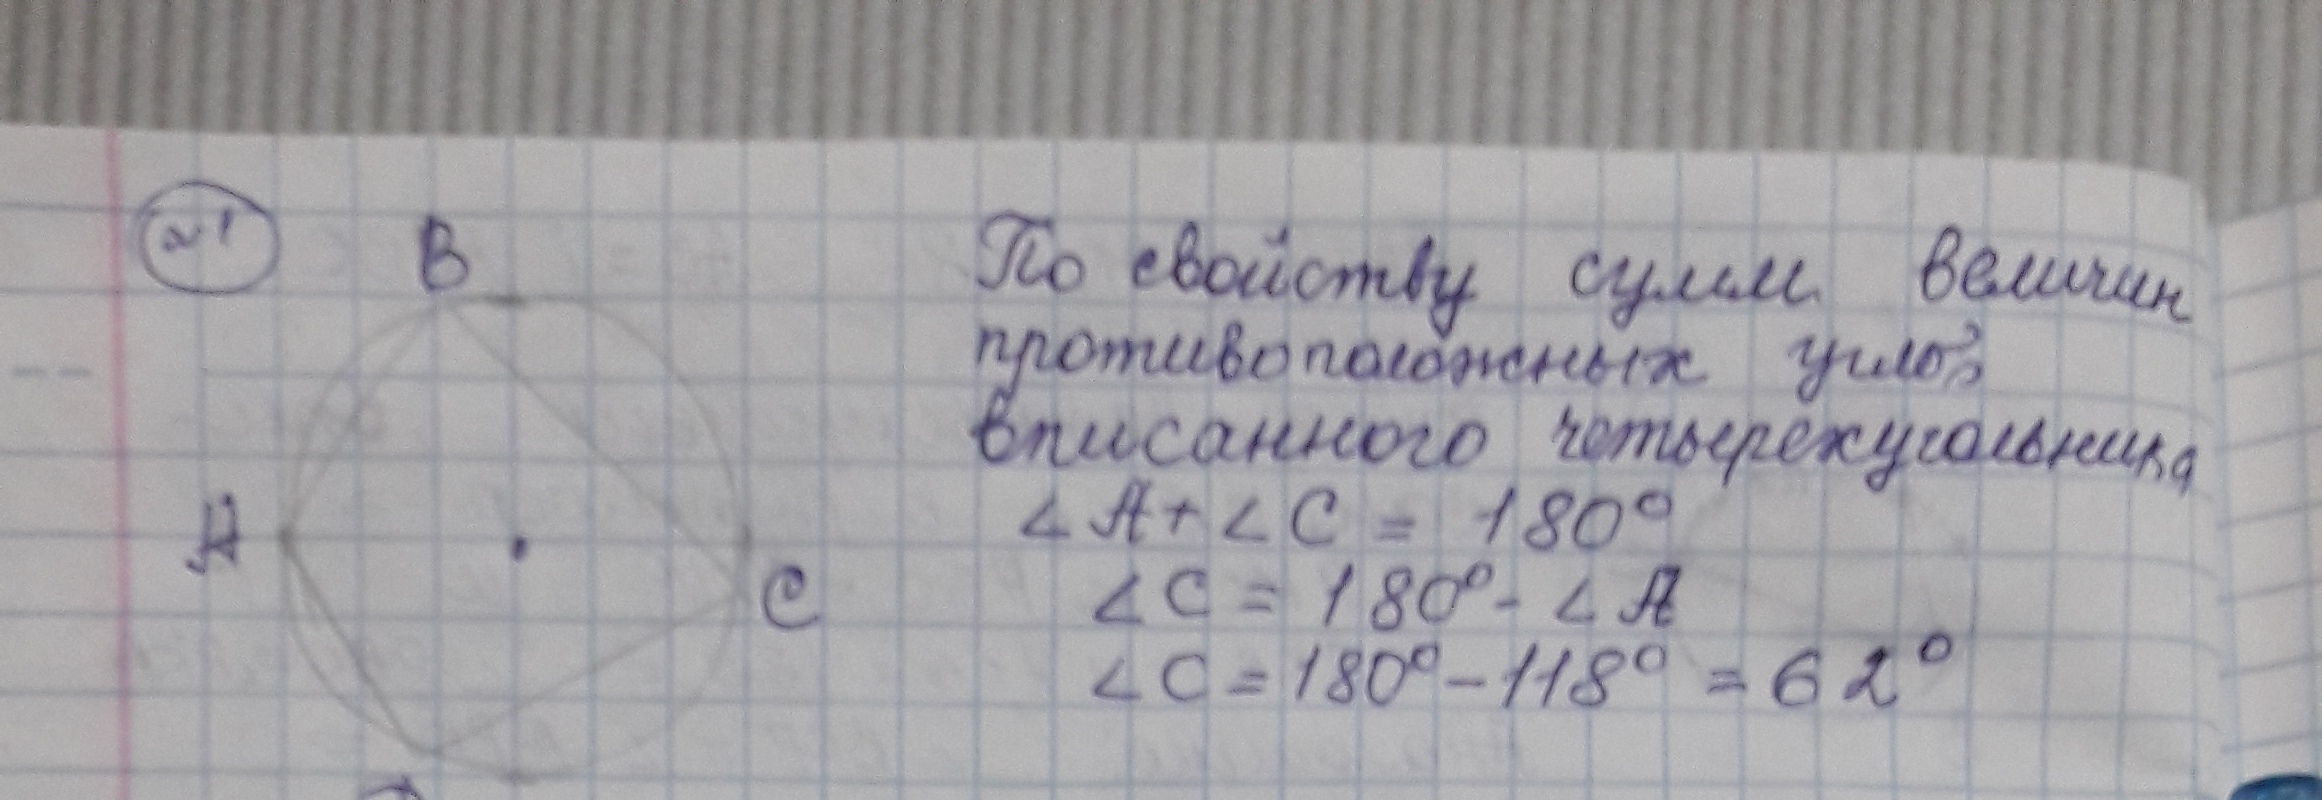 №1
B
По свойству сумм величин
противоположных углов
вписанного четырехугольника
A
∠A+∠C = 180°
C
∠C = 180°- ∠A
∠C = 180°-118° = 62°